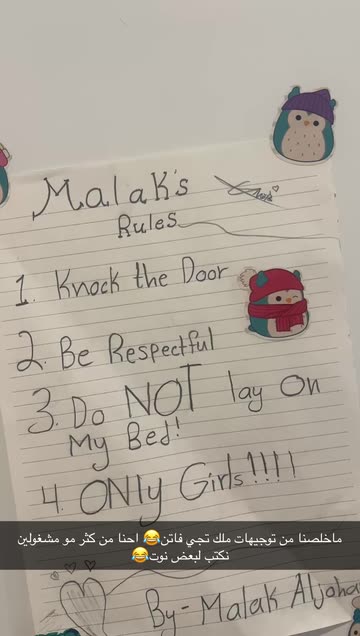 Malak's
Rules
1. Knock the Door
2. Be Respectful
3. Do NOT lay On
My Bed!
4. ONly Girls!!!!
ماخلصنا من توجيهات ملك تجي فاتن😂 احنا من كثر مو مشغولين
نكتب لبعض نوت😂
By-Malak Aljoha